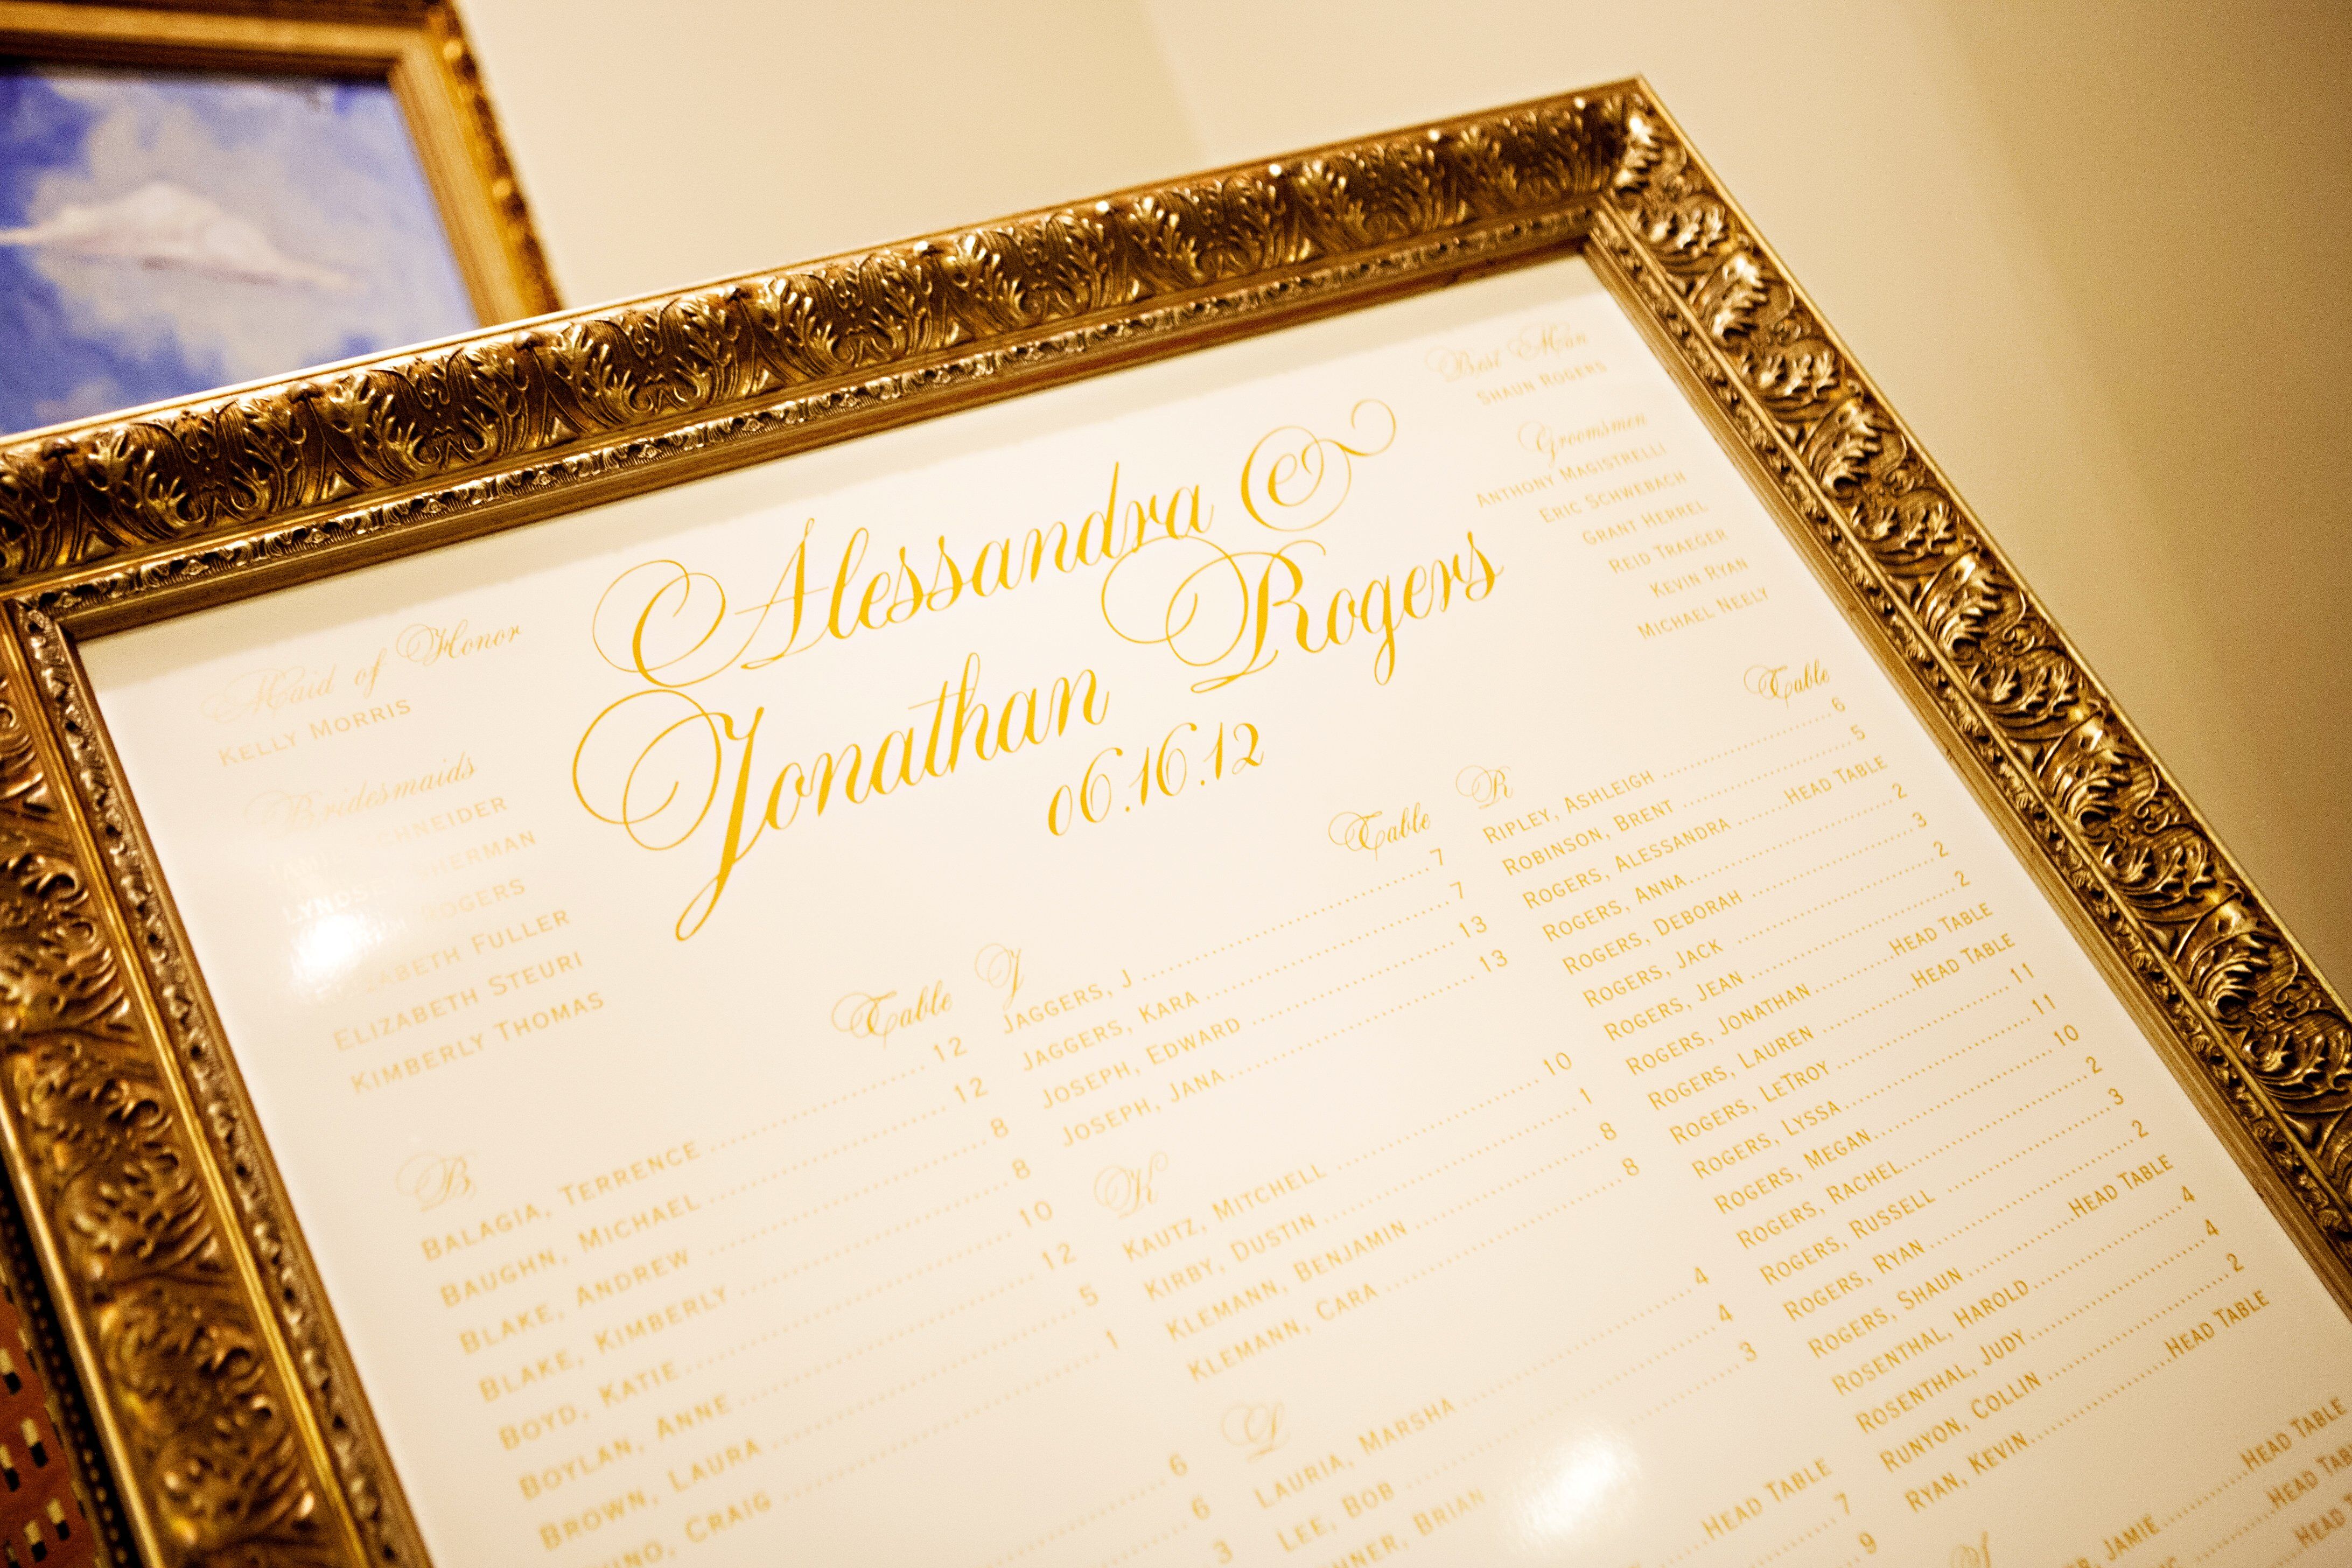 Alessandra &
Jonathan Rogers
06.16.12
Maid of Honor
KELLY MORRIS
Bridesmaids
ELIZABETH STEURI
KIMBERLY THOMAS
FULLER
Best Man
SHAUN ROGERS
Groomsmen
ANTHONY MAGISTRELLI
ERIC SCHWEBACH
GRANT HERREL
REID TRAEGER
KEVIN RYAN
MICHAEL NEELY
Table
B
BALAGIA, TERRENCE 12
BAUGHN, MICHAEL 12
BLAKE, ANDREW 8
BLAKE, KIMBERLY 8
BOYD, KATIE 10
BOYLAN, ANNE 12
BROWN, LAURA 5
CRAIG 1
6
6
3
Table
J
JAGGERS, J 7
JAGGERS, KARA 7
JOSEPH, EDWARD 13
JOSEPH, JANA 13
K
KAUTZ, MITCHELL 10
KIRBY, DUSTIN 1
KLEMANN, BENJAMIN 8
KLEMANN, CARA 8
L
LAURIA, MARSHA 4
LEE, BOB 4
BRIAN 3
HEAD TABLE
7
9
Table
R
RIPLEY, ASHLEIGH 6
ROBINSON, BRENT 5
ROGERS, ALESSANDRA HEAD TABLE
ROGERS, ANNA 2
ROGERS, DEBORAH 3
ROGERS, JACK 2
ROGERS, JEAN 2
ROGERS, JONATHAN HEAD TABLE
ROGERS, LAUREN HEAD TABLE
ROGERS, LETROY 11
ROGERS, LYSSA 11
ROGERS, MEGAN 10
ROGERS, RACHEL 2
ROGERS, RUSSELL 3
ROGERS, RYAN 2
ROGERS, SHAUN HEAD TABLE
ROSENTHAL, HAROLD 4
ROSENTHAL, JUDY 4
RUNYON, COLLIN 2
RYAN, KEVIN HEAD TABLE
S
JAMIE HEAD TABLE
HEAD
HEAD